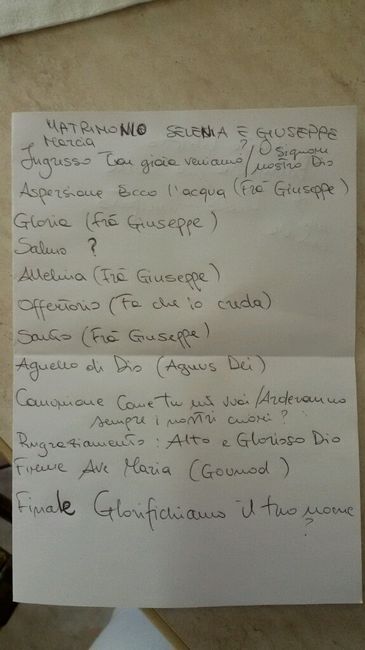 MATRIMONIO SELENIA E GIUSEPPE
Marcia
Ingresso Con gioia veniamo?/O Signore nostro Dio
Aspersione Ecco l'acqua (Frà Giuseppe)
Gloria (Frà Giuseppe)
Salmo ?
Alleluia (Frà Giuseppe)
Offertorio (Fa che io creda)
Santo (Frà Giuseppe)
Agnello di Dio (Agnus Dei)
Comunione Come tu mi vuoi/Arderanno
sempre i nostri cuori?
Ringraziamento: Alto e Glorioso Dio
Firme Ave Maria (Gounod)
Finale Glorifichiamo il tuo nome
?